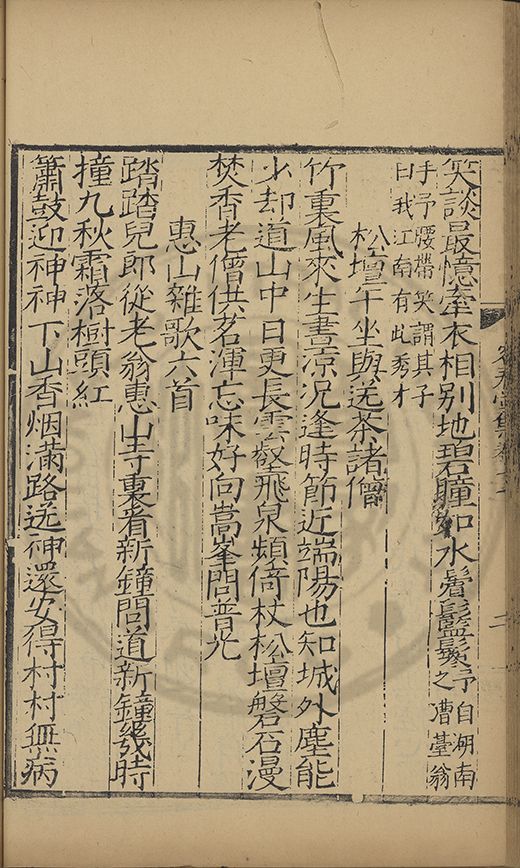 笑談最憶牽衣相別地碧瞳如水鬢䰐鬖予自湖南之漕臺翁
手予腰帶笑謂其子曰我江南有此秀才
松壇午坐與送茶諸僧
竹裏風來生晝涼況逢時節近端陽也知城外塵能
少却道山中日更長雲壑飛泉頻倚杖松壇磐石漫
焚香老僧供茗渾忘味好向嵩峯問普光
惠山雜歌六首
踏踏兒郎從老翁惠山寺裏看新鐘問道新鐘幾時
撞九秋霜落樹頭紅
簫鼓迎神神下山香烟滿路送神還安得村村無病